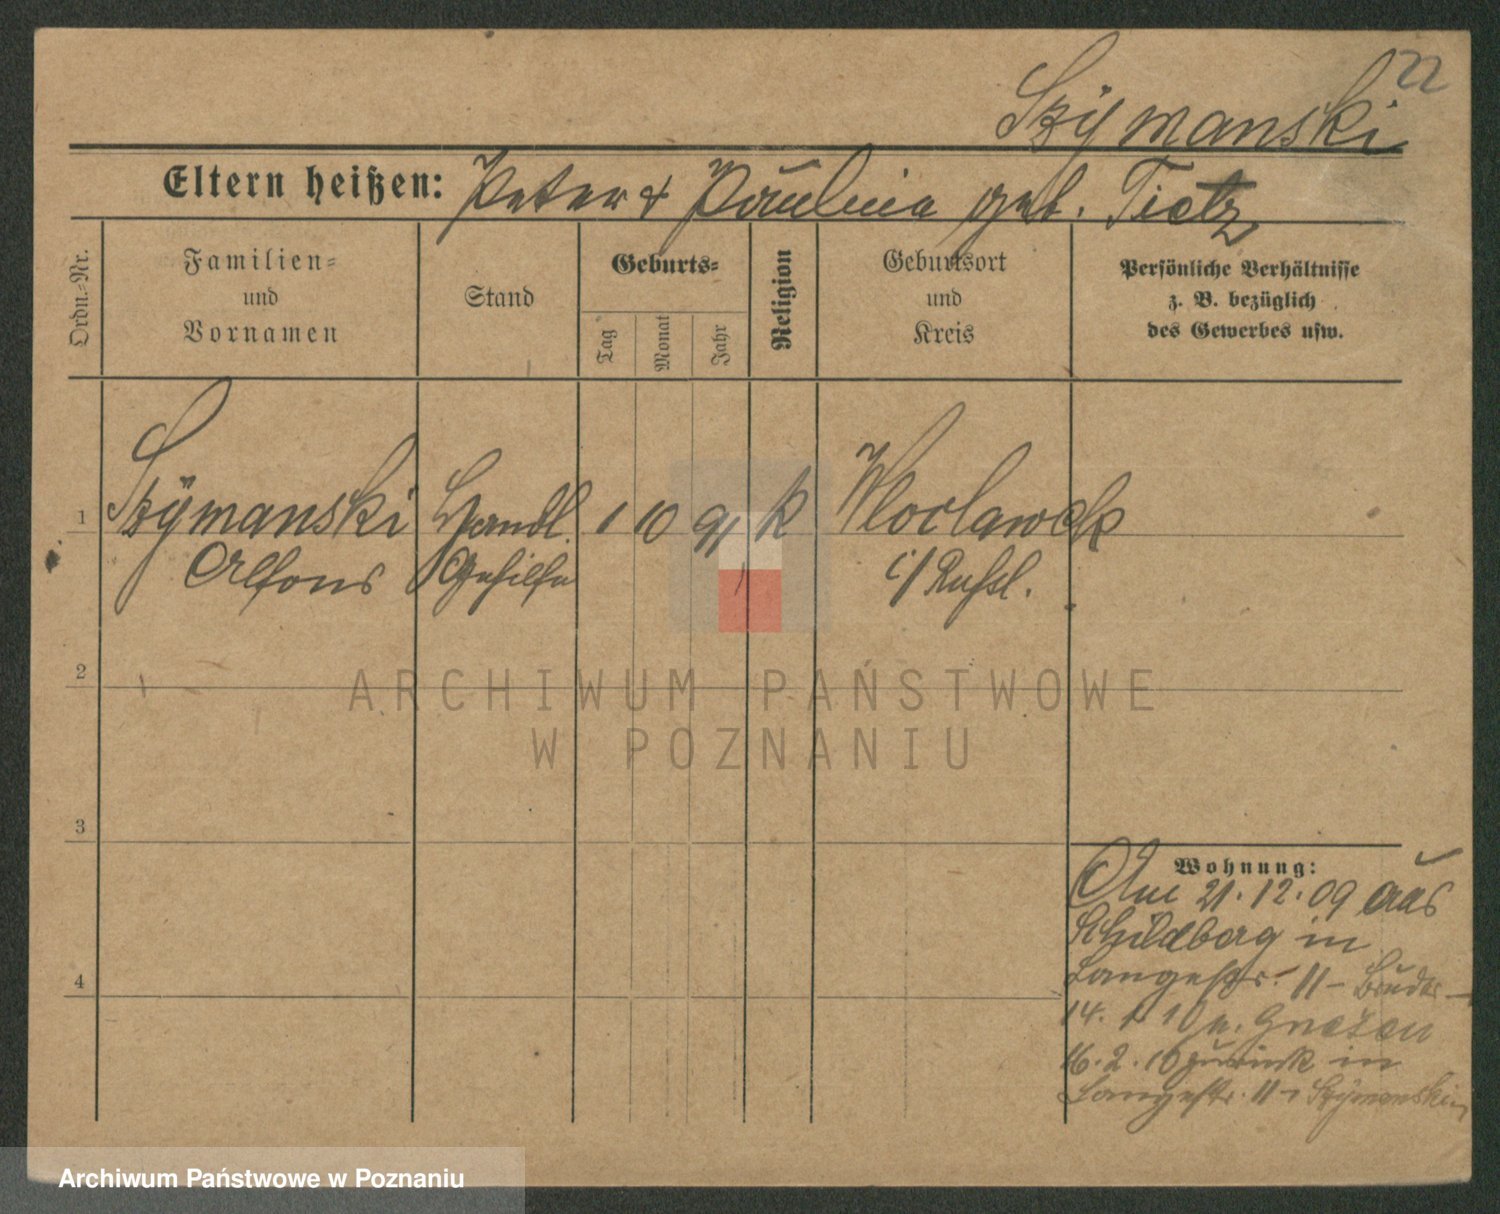 22
Szÿmanski
Eltern heißen: Peter & Paulina geb. Tietz
Ordn.-Nr.
Familien-
und
Vornamen
Stand
Geburts-
Tag
Monat
Jahr
Religion
Geburtsort
und
Kreis
Persönliche Verhältnisse
z. B. bezüglich
des Gewerbes usw.
1 Szÿmanski Handl. 1 10 91 k Wloclawek
Alfons Gehilfe i/Rußl.
2
ARCHIWUM PAŃSTWOWE
W POZNANIU
3
Wohnung:
Am 21.12.09 aus
Schildberg in
Langestr. 11 - Bruder -
4
14. 1 10 n. Gnesen
16.2.10 zurück in
Langestr. 11 Szÿmanski
Archiwum Państwowe w Poznaniu